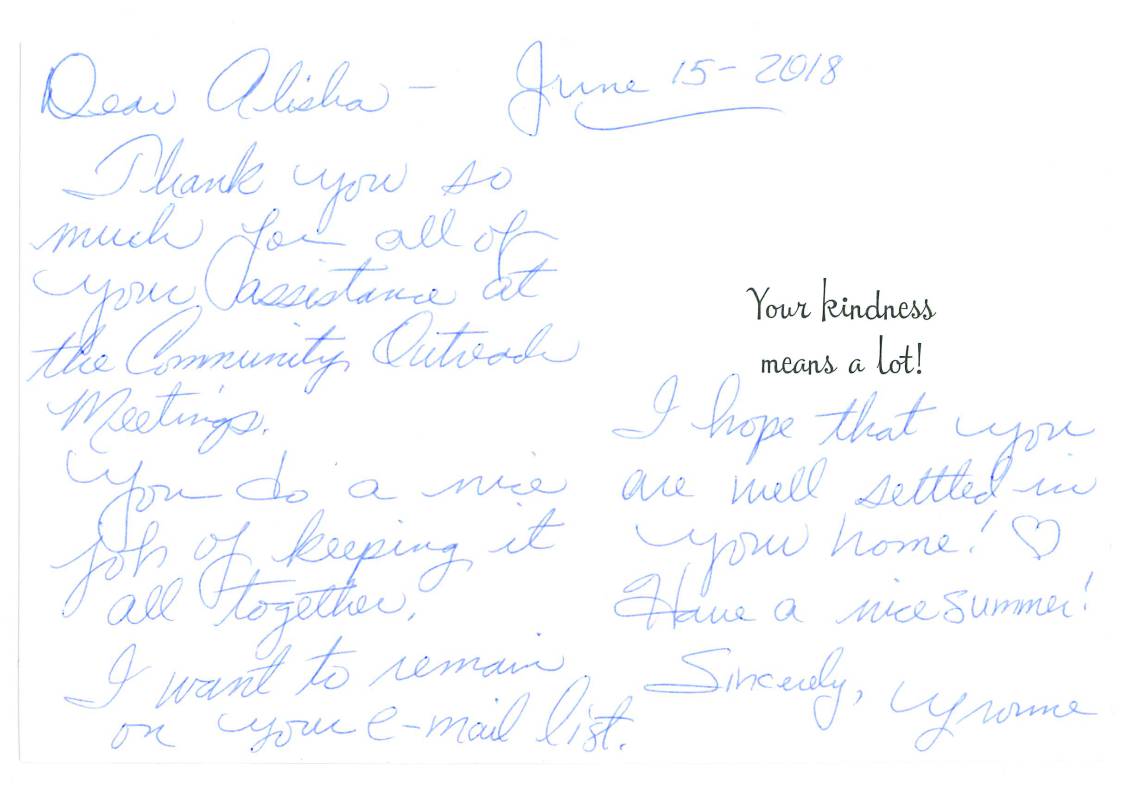 Dear Alisha - June 15 - 2018
Thank you so
much for all of
your assistance at
the Community Outreach
Meetings.
You do a nice
job of keeping it
all together.
I want to remain
on your e-mail list.
Your kindness
means a lot!
I hope that you
are well settled in
your home! ♡
Have a nice summer!
Sincerely, Yvonne